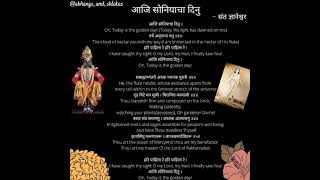 @abhanga_and_shlokas
आजि सोनियाचा दिनु
– संत ज्ञानेश्वर
आजि सोनियाचा दिनु ।
Oh, Today is the golden day! (Today His light my mind is illuminated)
वर्षे अमृताचा घनु ॥१॥
The cloud of nectar pours (in my way) (I am immersed in the nectar of His flute)
हरि पाहिला रे हरि पाहिला रे ।
I have sought thy sight O my Lord, my Hari, I finally saw You!
He, the flute holder, whose existence spans from
every cell within to the farthest dawn of the universe
दृढ विटे मन मुळी ।
Thou standeth firm and composed on the brick.
Waiting patiently,
watching your planet(devotees), Oh gardener Divine!
Enlightened seers and sages assemble for people's well being
and here Thou manifest Thyself
Thou art the ocean of Mercy and thou art my benefactor
Thou art my master O the Lord of Rakhamabai.
हरि पाहिला रे हरि पाहिला रे ।
I have sought thy sight O my Lord, my Hari, I finally saw You!
आजि सोनियाचा दिनु ।
Oh, Today is the golden day!